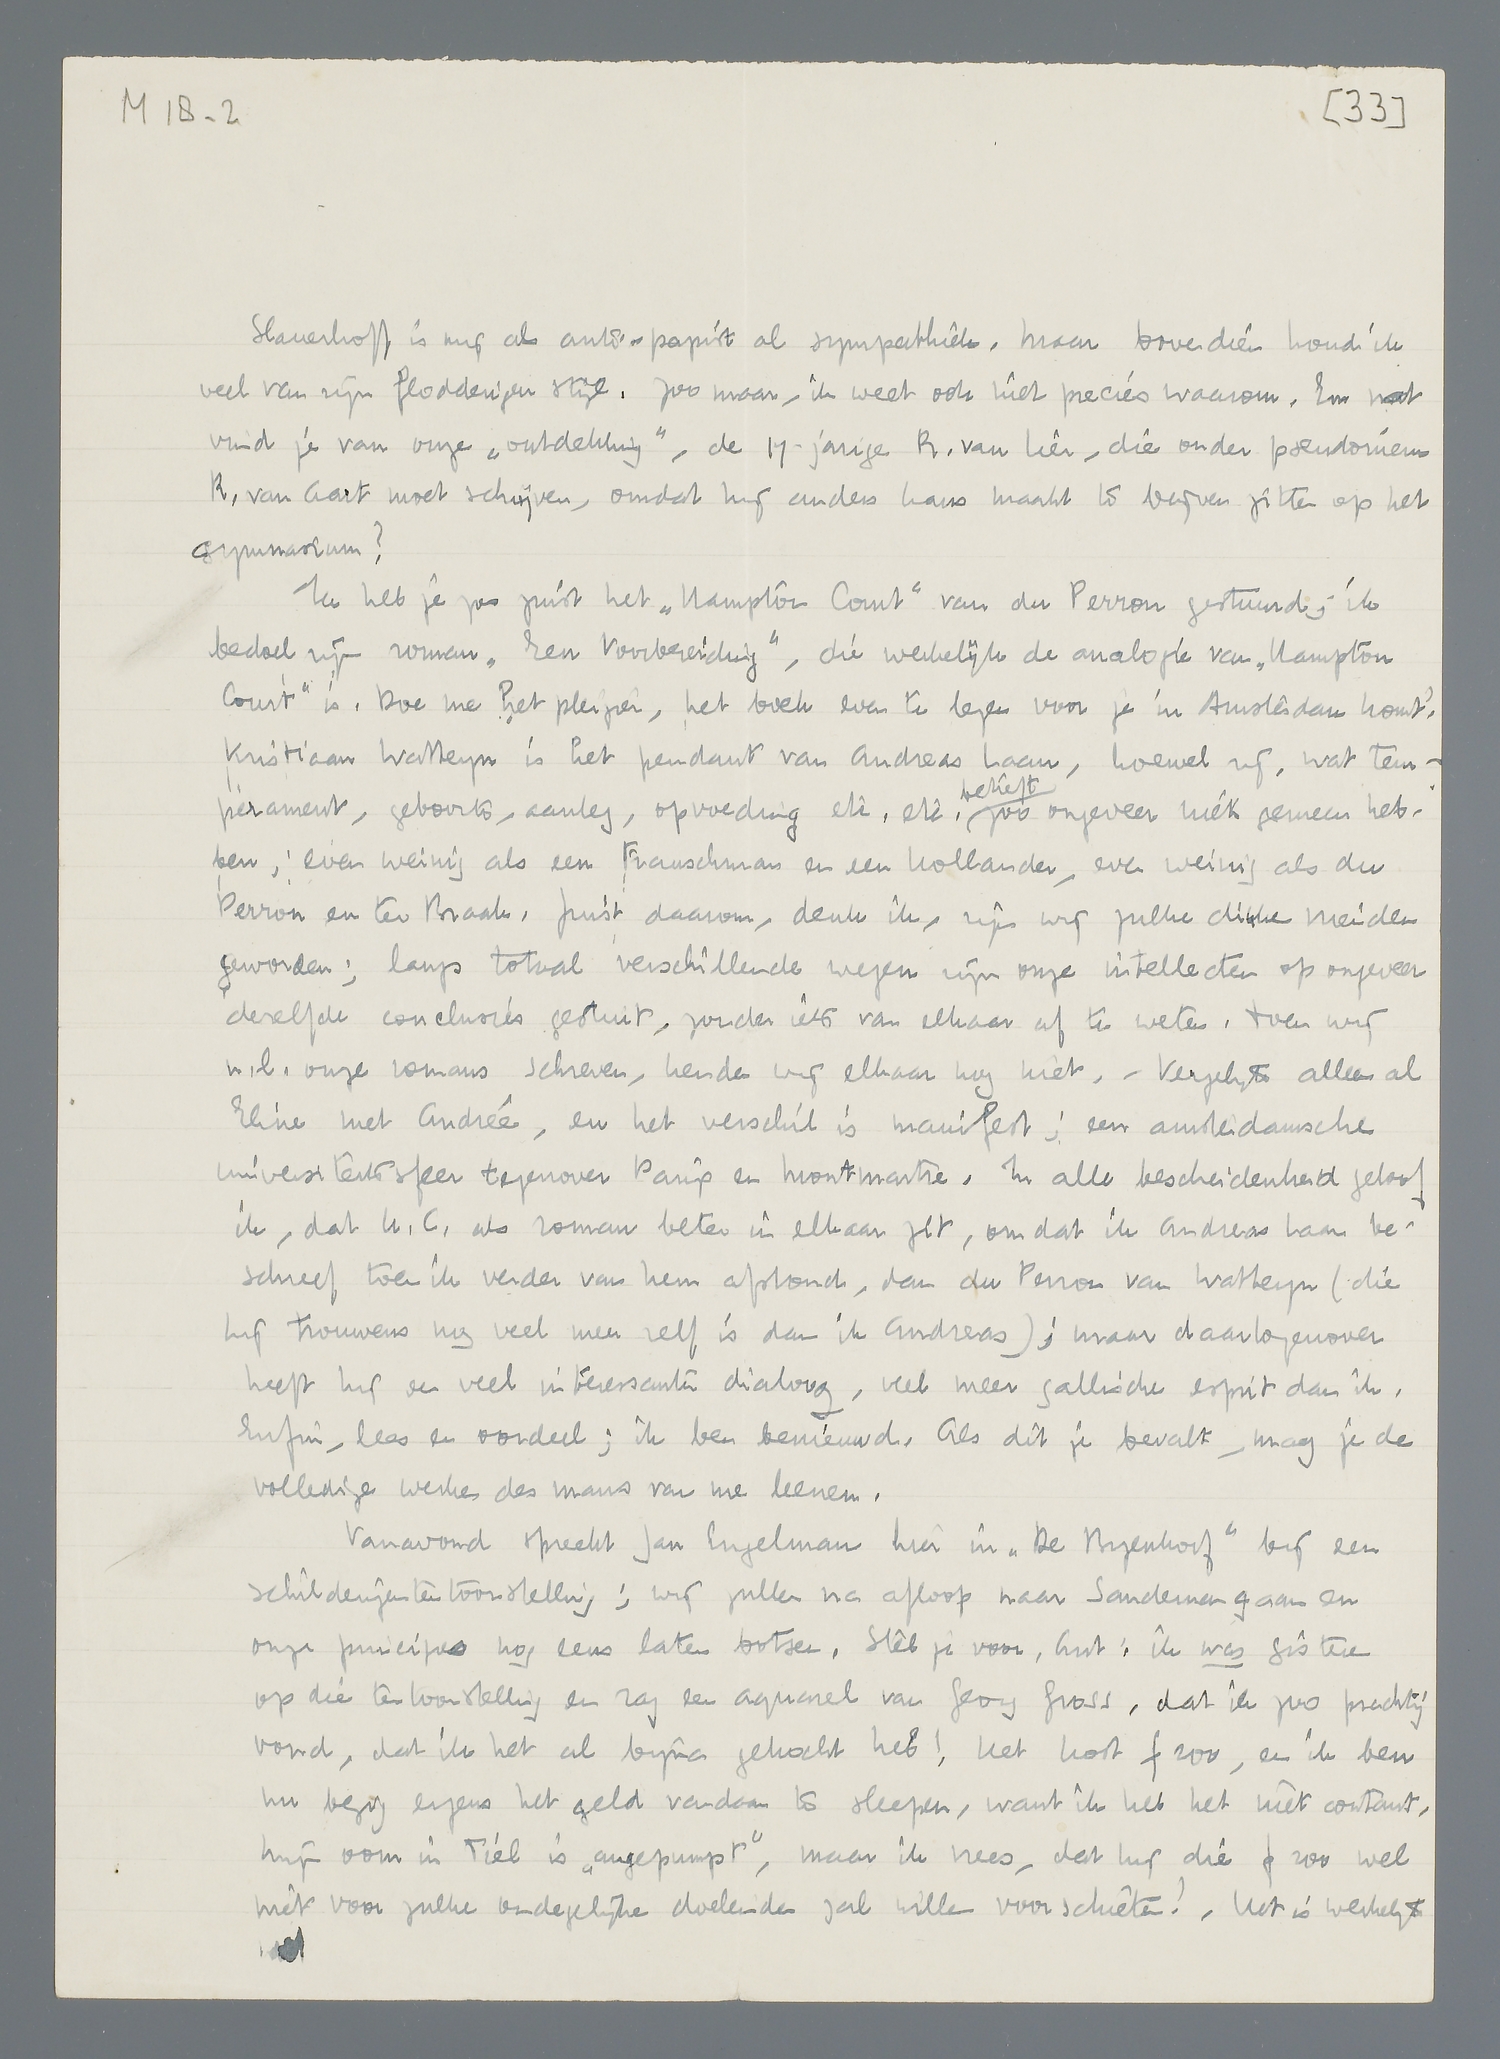 M 18-2
[33]
Slauerhoff is mij als anti-papist al sympathiek. Maar bovendien houd ik
veel van zijn flodderigen stijl. Zoo maar, ik weet ook niet precies waarom. En wat
vind je van onze „ontdekking”, de 17-jarige R. van Lier, die onder pseudoniem
R. van Aart moet schrijven, omdat hij anders kans maakt te blijven zitten op het
gymnasium?
Ik heb je zoo juist het „Hampton Court” van du Perron gestuurd; ik
bedoel zijn roman „Een Voorbereiding”, die werkelijk de analogie van „Hampton
Court” is. Doe me het pleizier, het boek even te lezen voor je in Amsterdam komt.
Kristiaan Watteyn is het pendant van Andreas Laan, hoewel zij, wat tem-
perament, geboorte, aanleg, opvoeding etc. etc. betreft zoo ongeveer niets gemeen heb-
ben; even weinig als een Franschman en een Hollander, even weinig als du
Perron en ter Braak. Juist daarom, denk ik, zijn wij zulke dikke vrienden
geworden; langs totaal verschillende wegen zijn onze intellecten op ongeveer
dezelfde conclusies gestuit, zonder iets van elkaar af te weten. Toen wij
n.l. onze romans schreven, kenden wij elkaar nog niet. – Vergelijk alleen al
Eline met Andrée, en het verschil is manifest; een amsterdamsche
universiteitssfeer tegenover Parijs en Montmartre. In alle bescheidenheid geloof
ik, dat H.C. als roman beter in elkaar zit, omdat ik Andreas Laan be-
schreef toen ik verder van hem afstond, dan du Perron van Watteyn (die
hij trouwens nog veel meer zelf is dan ik Andreas); maar daartegenover
heeft hij een veel interessanter dialoog, veel meer gallische esprit dan ik.
Enfin, lees en oordeel; ik ben benieuwd. Als dit je bevalt, mag je de
volledige werken des mans van me leenen.
Vanavond spreekt Jan Engelman hier in „De Bijenkorf” bij een
schilderijententoonstelling; wij zullen na afloop naar Sandeman gaan en
onze principes nog eens laten botsen. Stel je voor, Ant: ik was gisteren
op die tentoonstelling en zag een aquarel van Georg Grosz, dat ik zoo prachtig
vond, dat ik het al bijna gekocht heb! Het kost ƒ 200, en ik ben
nu bezig ergens het geld vandaan te sleepen, want ik heb het niet contant.
Mijn oom in Tiel is „angepumpt”, maar ik vrees, dat hij die ƒ 200 wel
niet voor zulke ondegelijke doeleinden zal willen voorschieten! Het is werkelijk